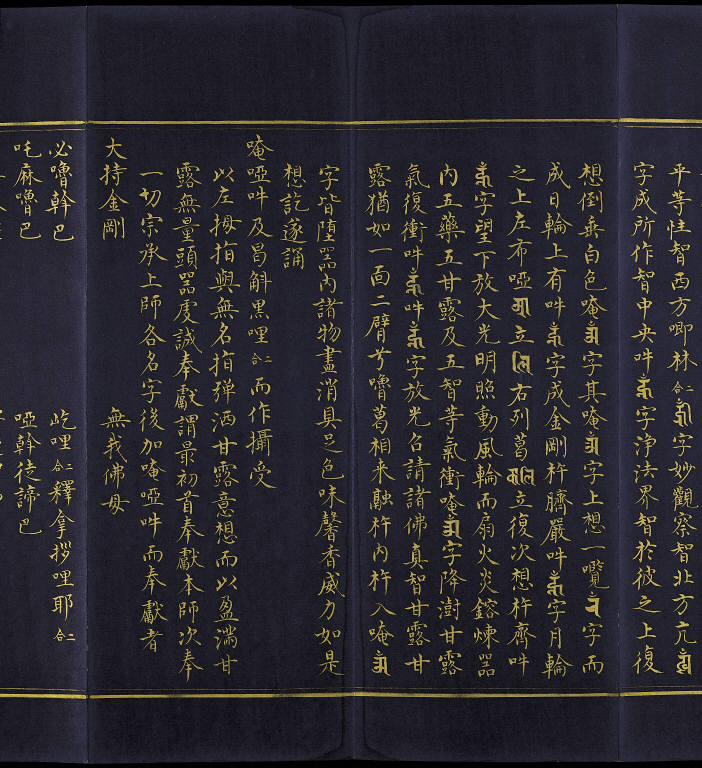 平等性智西方唧林二合𑖕𑖿𑖨𑖱𑖽字妙觀察智北方亢𑖮𑖽
字成所作智中央吽𑖮𑖳𑖽字淨法界智於彼之上復
想倒垂白色唵𑖌𑖼字其唵𑖌𑖼字上想一囕𑖨𑖽字而
成日輪上有吽𑖮𑖳𑖽字成金剛杵臍嚴吽𑖮𑖳𑖽字月輪
之上左布啞立右列葛立復次想杵齊吽
𑖮𑖳𑖽字望下放大光明照動風輪而扇火炎鎔煉器
內五藥五甘露及五智等氣衝唵𑖌𑖼字降澍甘露
氣復衝吽𑖮𑖳𑖽吽𑖮𑖳𑖽字放光召請諸佛真智甘露甘
露猶如一面二臂兮嚕葛相来融杵內杵入唵𑖌𑖼
字皆墮器內諸物盡消具足色味馨香威力如是
想訖遂誦
唵啞吽及曷斛黑哩二合而作攝受
以左拇指與無名指弹洒甘露意想而以盈滿甘
露無量頭器虔誠奉獻謂最初首奉獻本師次奉
一切宗承上師各名字後加唵啞吽而奉獻者
大持金剛 無我佛母
必嚕斡巴 屹哩二合釋拿拶哩耶二合
吒麻嚕巴 啞斡徒諦巴